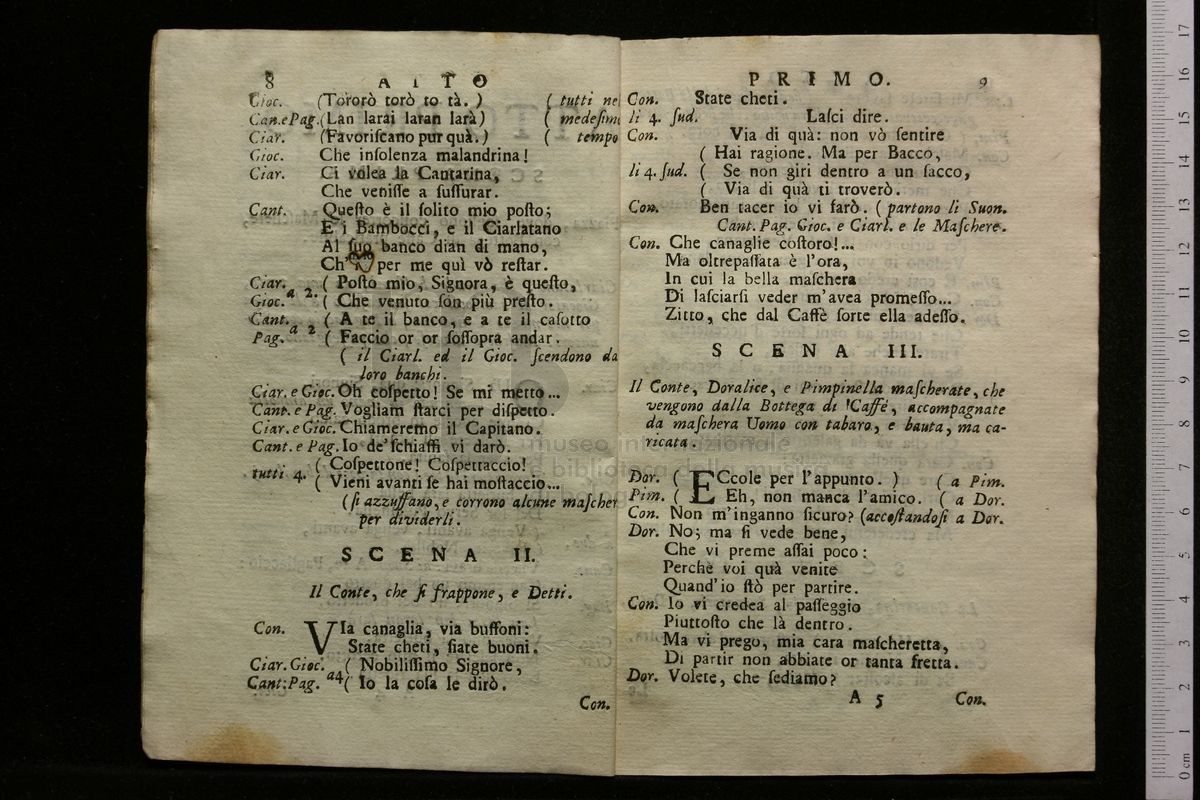 8 ATTO
Gioc. (Tororò torò to tà.) ( tutti nel
Can.e Pag.(Lan larai laran larà) ( medesimo
Ciar. (Favoriſcano pur quà.) ( tempo
Gioc. Che inſolenza malandrina!
Ciar. Ci volea la Cantarina,
Che veniſſe a ſuſſurar.
Cant. Queſto è il ſolito mio poſto;
E i Bambocci, e il Ciarlatano
Al ſuo banco dian di mano,
Ch' per me quì vò reſtar.
Ciar. ( Poſto mio, Signora, è queſto,
Gioc. a 2. ( Che venuto ſon più preſto.
Cant. ( A te il banco, e a te il caſotto
Pag. a 2 ( Faccio or or ſoſſopra andar.
( il Ciarl. ed il Gioc. ſcendono da
loro banchi.
Ciar. e Gioc. Oh coſpetto! Se mi metto...
Cant. e Pag. Vogliam ſtarci per diſpetto.
Ciar. e Gioc. Chiameremo il Capitano.
Cant. e Pag. Io de'ſchiaffi vi darò.
tutti 4. ( Coſpettone! Coſpettaccio!
( Vieni avanti ſe hai moſtaccio...
(ſi azzuffano, e corrono alcune maſcher
per dividerli.
SCENA II.
Il Conte, che ſi frappone, e Detti.
Con. VIa canaglia, via buffoni:
State cheti, ſiate buoni.
Ciar. Gioc. ( Nobiliſſimo Signore,
Cant: Pag. a4 ( Io la coſa le dirò.
Con.
PRIMO. 9
Con. State cheti.
li 4. ſud. Laſci dire.
Con. Via di quà: non vò ſentire
( Hai ragione. Ma per Bacco,
li 4. ſud. ( Se non giri dentro a un ſacco,
( Via di quà ti troverò.
Con. Ben tacer io vi farò. ( partono li Suon.
Cant. Pag. Gioc. e Ciarl. e le Maſchere.
Con. Che canaglie coſtoro!...
Ma oltrepaſſata è l'ora,
In cui la bella maſchera
Di laſciarſi veder m'avea promeſſo...
Zitto, che dal Caffè ſorte ella adeſſo.
SCENA III.
Il Conte, Doralice, e Pimpinella maſcherate, che
vengono dalla Bottega di 'Caffé, accompagnate
da maſchera Uomo con tabaro, e bauta, ma ca-
ricata.
Dor. ( ECcole per l'appunto. ) ( a Pim.
Pim. ( Eh, non manca l'amico. ( a Dor.
Con. Non m'inganno ſicuro? (accoſtandoſi a Dor.
Dor. No; ma ſi vede bene,
Che vi preme aſſai poco:
Perchè voi quà venite
Quand'io ſtò per partire.
Con. Io vi credea al paſſeggio
Piuttoſto che là dentro.
Ma vi prego, mia cara maſcheretta,
Di partir non abbiate or tanta fretta.
Dor. Volete, che ſediamo?
A 5 Con.
museo internazionale
e biblioteca della musica
0 cm 1 2 3 4 5 6 7 8 9 10 11 12 13 14 15 16 17